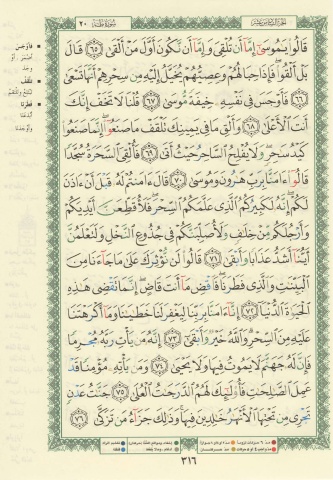 الجزء السادس عشر
سورة طه
٢٠
قَالُوا۟ يَـٰمُوسَىٰٓ إِمَّآ أَن تُلْقِىَ وَإِمَّآ أَن نَّكُونَ أَوَّلَ مَنْ أَلْقَىٰ ٦٥ قَالَ
بَلْ أَلْقُوا۟ فَإِذَا حِبَالُهُمْ وَعِصِيُّهُمْ يُخَيَّلُ إِلَيْهِ مِن سِحْرِهِمْ أَنَّهَا تَسْعَىٰ
٦٦ فَأَوْجَسَ فِى نَفْسِهِۦ خِيفَةً مُّوسَىٰ ٦٧ قُلْنَا لَا تَخَفْ إِنَّكَ
أَنتَ ٱلْأَعْلَىٰ ٦٨ وَأَلْقِ مَا فِى يَمِينِكَ تَلْقَفْ مَا صَنَعُوٓا۟ إِنَّمَا صَنَعُوا۟
كَيْدُ سَـٰحِرٍ وَلَا يُفْلِحُ ٱلسَّاحِرُ حَيْثُ أَتَىٰ ٦٩ فَأُلْقِىَ ٱلسَّحَرَةُ سُجَّدًا
قَالُوٓا۟ ءَامَنَّا بِرَبِّ هَـٰرُونَ وَمُوسَىٰ ٧٠ قَالَ ءَامَنتُمْ لَهُۥ قَبْلَ أَنْ ءَاذَنَ
لَكُمْ إِنَّهُۥ لَكَبِيرُكُمُ ٱلَّذِى عَلَّمَكُمُ ٱلسِّحْرَ فَلَأُقَطِّعَنَّ أَيْدِيَكُمْ
وَأَرْجُلَكُم مِّنْ خِلَـٰفٍ وَلَأُصَلِّبَنَّكُمْ فِى جُذُوعِ ٱلنَّخْلِ وَلَتَعْلَمُنَّ
أَيُّنَآ أَشَدُّ عَذَابًا وَأَبْقَىٰ ٧١ قَالُوا۟ لَن نُّؤْثِرَكَ عَلَىٰ مَا جَآءَنَا مِنَ
ٱلْبَيِّنَـٰتِ وَٱلَّذِى فَطَرَنَا فَٱقْضِ مَآ أَنتَ قَاضٍ إِنَّمَا تَقْضِى هَـٰذِهِ
ٱلْحَيَوٰةَ ٱلدُّنْيَآ ٧٢ إِنَّآ ءَامَنَّا بِرَبِّنَا لِيَغْفِرَ لَنَا خَطَـٰيَـٰنَا وَمَآ أَكْرَهْتَنَا
عَلَيْهِ مِنَ ٱلسِّحْرِ وَٱللَّهُ خَيْرٌ وَأَبْقَىٰٓ ٧٣ إِنَّهُۥ مَن يَأْتِ رَبَّهُۥ مُجْرِمًا
فَإِنَّ لَهُۥ جَهَنَّمَ لَا يَمُوتُ فِيهَا وَلَا يَحْيَىٰ ٧٤ وَمَن يَأْتِهِۦ مُؤْمِنًا قَدْ
عَمِلَ ٱلصَّـٰلِحَـٰتِ فَأُو۟لَـٰٓئِكَ لَهُمُ ٱلدَّرَجَـٰتُ ٱلْعُلَىٰ ٧٥ جَنَّـٰتُ عَدْنٍ
تَجْرِى مِن تَحْتِهَا ٱلْأَنْهَـٰرُ خَـٰلِدِينَ فِيهَا وَذَٰلِكَ جَزَآءُ مَن تَزَكَّىٰ ٧٦
فأوجس
أضمر، أو
وجد
تلقف
تبتلع وتلتقم
فطرنا
أبدعنا
وأوجدنا
٣١٦